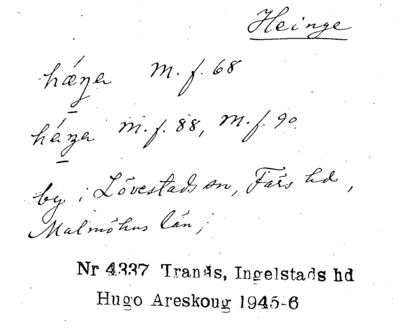 Heinge
hæŋa m.f. 68
háŋa m.f. 88, m.f. 90
by i Lövestads sn, Färs hd,
Malmöhus län;
Nr 4337 Tranås, Ingelstads hd
Hugo Areskoug 1945-6